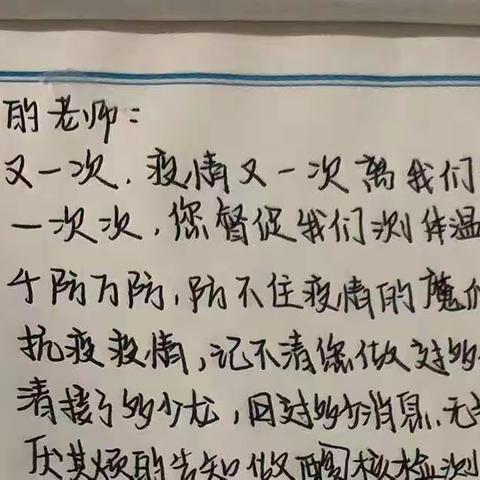 的老师：
又一次，疫情又一次离我们
一次次，您督促我们测体温
千防万防，防不住疫情的魔
抗疫疫情，记不清您做过多
清接了多少龙，回过多少消息，无
厌其烦的告知做酮核检测